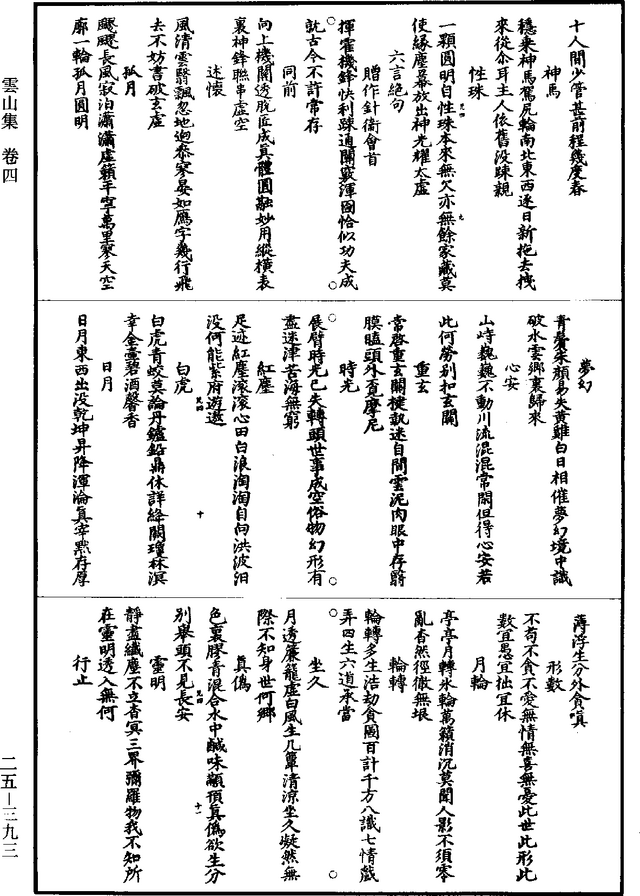 雲山集　卷四
十人間少管甚前程幾度春
神馬
穩乘神馬駕尻輪南北東西逐日新拖去拽
來從尒耳主人依舊没踈親
性珠
一顆圓明自性珠本來無欠亦無餘家藏莫
使緣塵幕放出神光耀太虛
六言絕句
贈作針衛會首
揮霍機鋒快利踈通關竅渾囫恰似功夫成
就古今不許常存
同前
向上機關透脫匠成真體圓融妙用縱橫表
裏神鋒聯串虛空
述懷
風清雲翳飄忽地迥黍寥晏如鴈字幾行飛
去不妨書破玄虛
孤月
颼颼長風寂泊瀟瀟虛籟平空萬里寥天空
廓一輪孤月圓明
夢幻
青鬢朱顏易失黄雞白日相催夢幻境中識
破水雲鄉裏歸來
心安
山峙巍巍不動川流混混常閑但得心安若
此何勞别扣玄關
重玄
常啓重玄關楗覰迷自間雲泥肉眼中存翳
膜瞌頭外覔摩尼
時光
展臂時光已失轉頭世事成空俗物幻形有
盡迷津苦海無窮
紅塵
足迹紅塵滚滚心田白浪淘淘自向洪波汨
没何能紫府遊遨
白虎
白虎青蛟莫論丹鑪鉛鼎休詳絳闕瓊林溟
幸金臺碧酒馨香
日月
日月東西出没乾坤昇降渾淪真宰黙存厚
薄浮生分外貪嗔
形數
不苟不貪不愛無情無喜無憂此世此形此
數宜愚宜拙宜休
月輪
亭亭月轉氷輪萬籟消沉莫聞人影不須零
亂杳然徑徹無垠
輪轉
輪轉多生浩劫貪圖百計千方八識七情戲
弄四生六道承當
坐久
月透簾櫳虛白風生几簟清凉坐久凝然無
際不知身世何鄉
真偽
色裏膠青混合水中鹹味顢頇真偽欲生分
别舉頭不見長安
靈明
靜盡纖塵不立杳冥三界彌羅物我不知所
在靈明透入無何
行止
二五－三九三